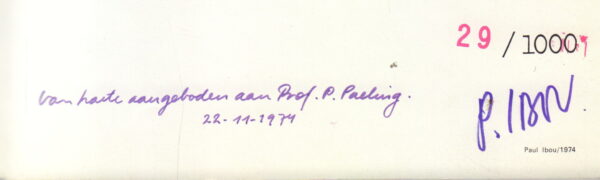 29 / 1000
Van harte aangeboden aan Prof. P. Paeling.
22-11-1974
P. IBOU
Paul Ibou/1974